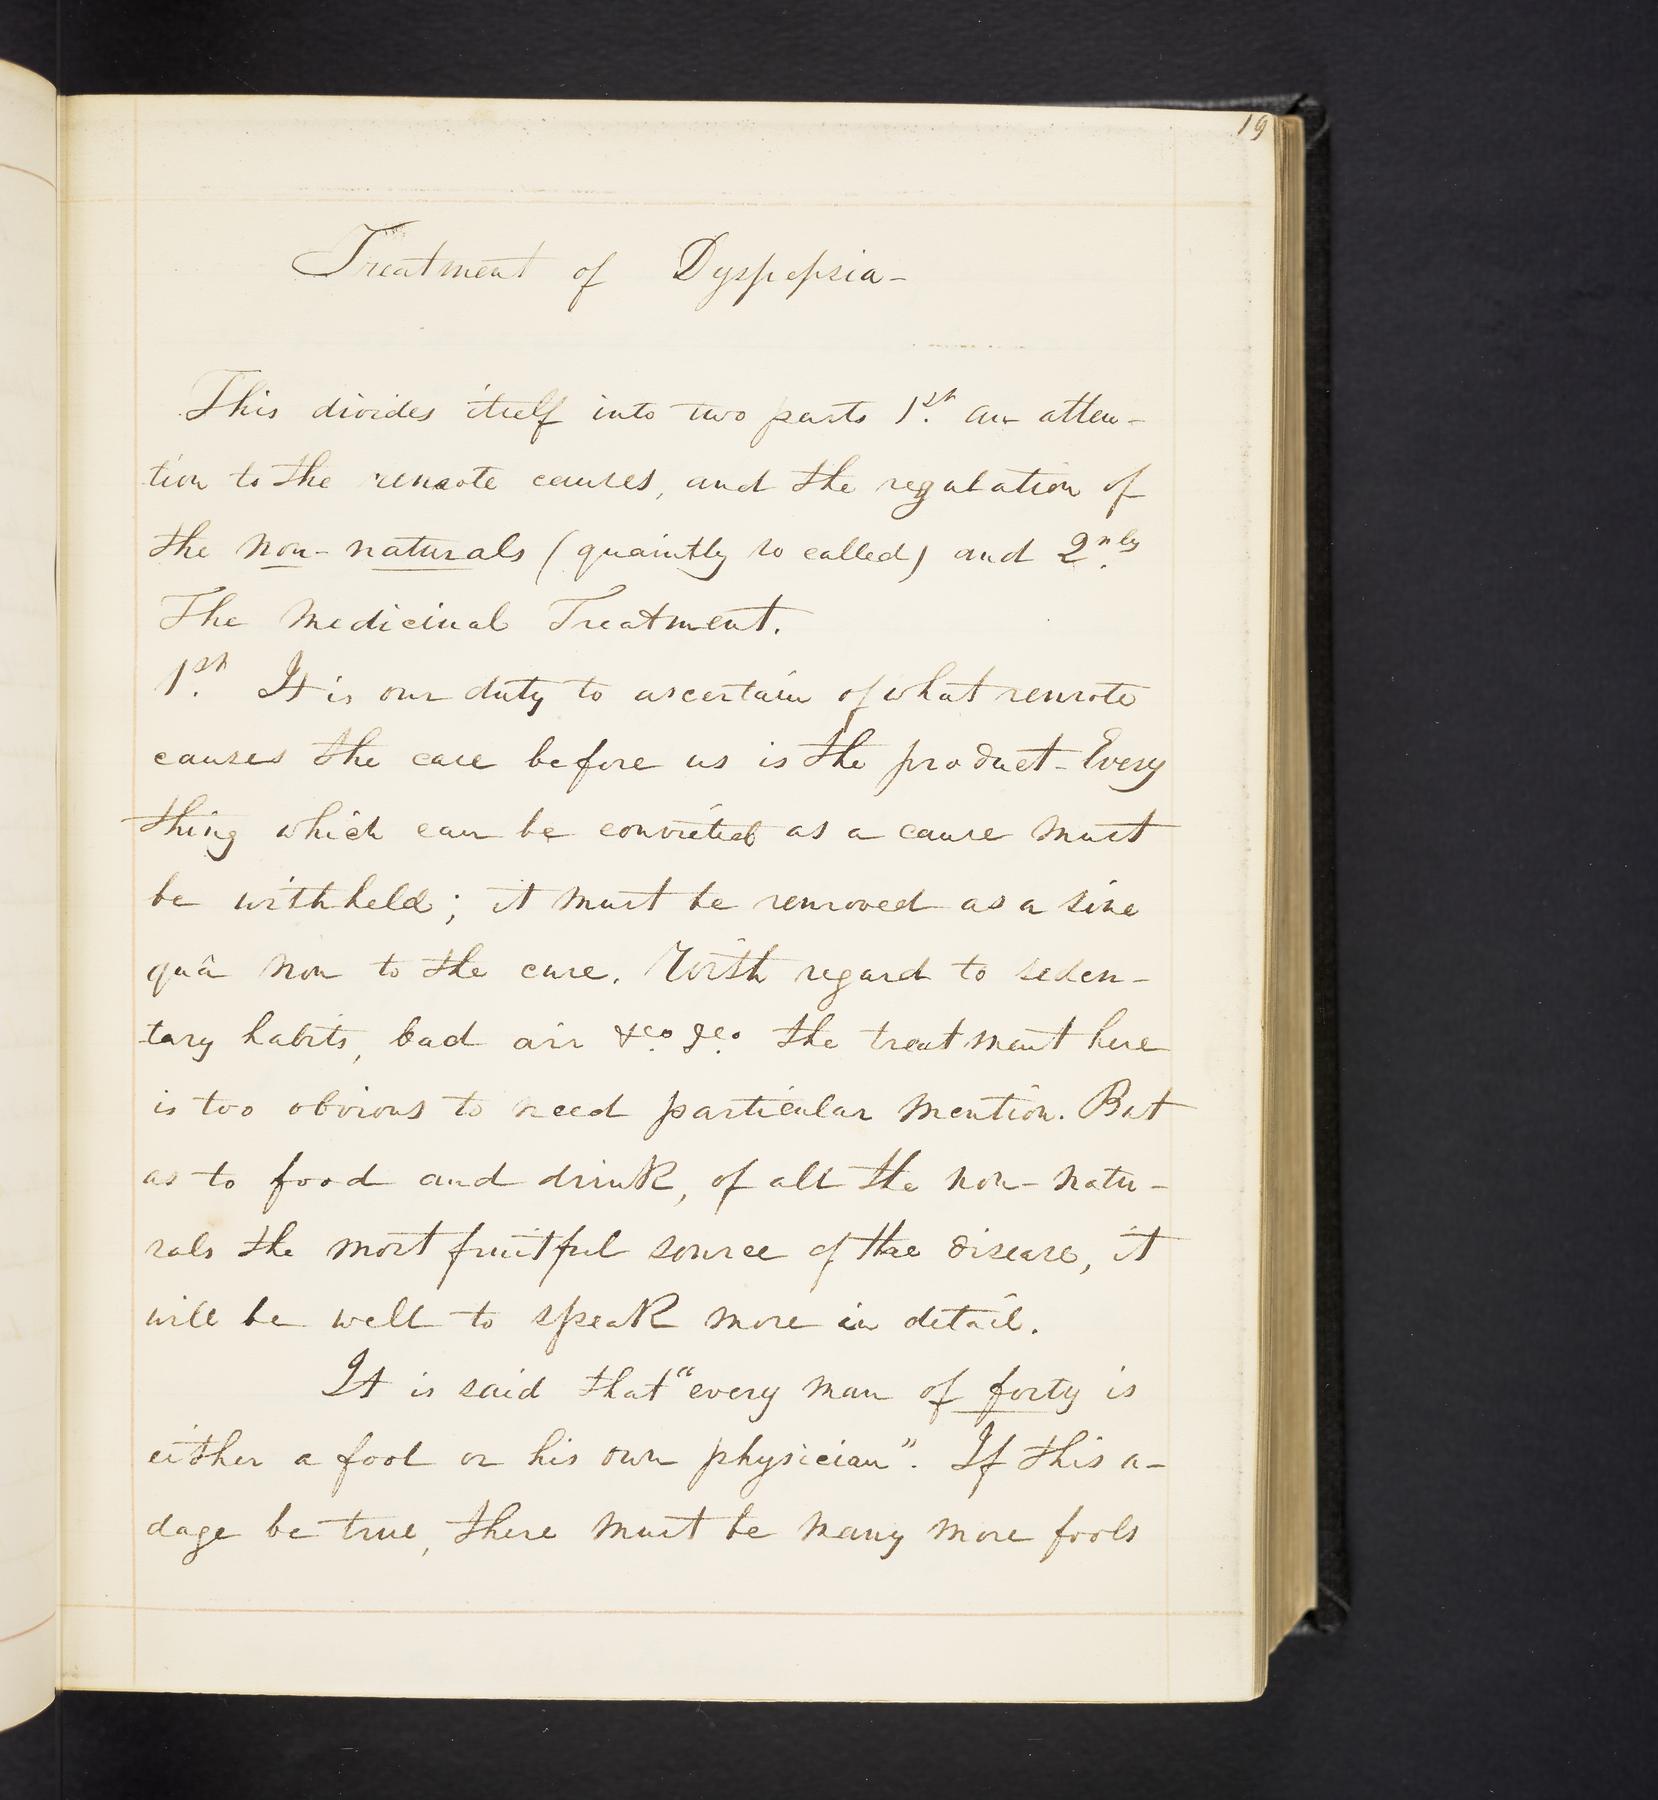 19
Treatment of Dyspepsia -
This divides itself into two parts 1st. an atten-
tion to the remote causes, and the regulation of
the non-naturals (quaintly so called) and 2nly.
The Medicinal Treatment.
1st. It is our duty to ascertain of what remote
causes the case before us is the product - Every
thing which can be convicted as a cause must
be withheld; it must be removed as a sine
quâ non to the cure. With regard to seden-
tary habits, bad air &co. &co. the treatment here
is too obvious to need particular mention. But
as to food and drink, of all the non-natu-
rals the most fruitful source of the disease, it
will be well to speak more in detail.
It is said that "every man of forty is
either a fool or his own physician". If this a-
dage be true, there must be many more fools